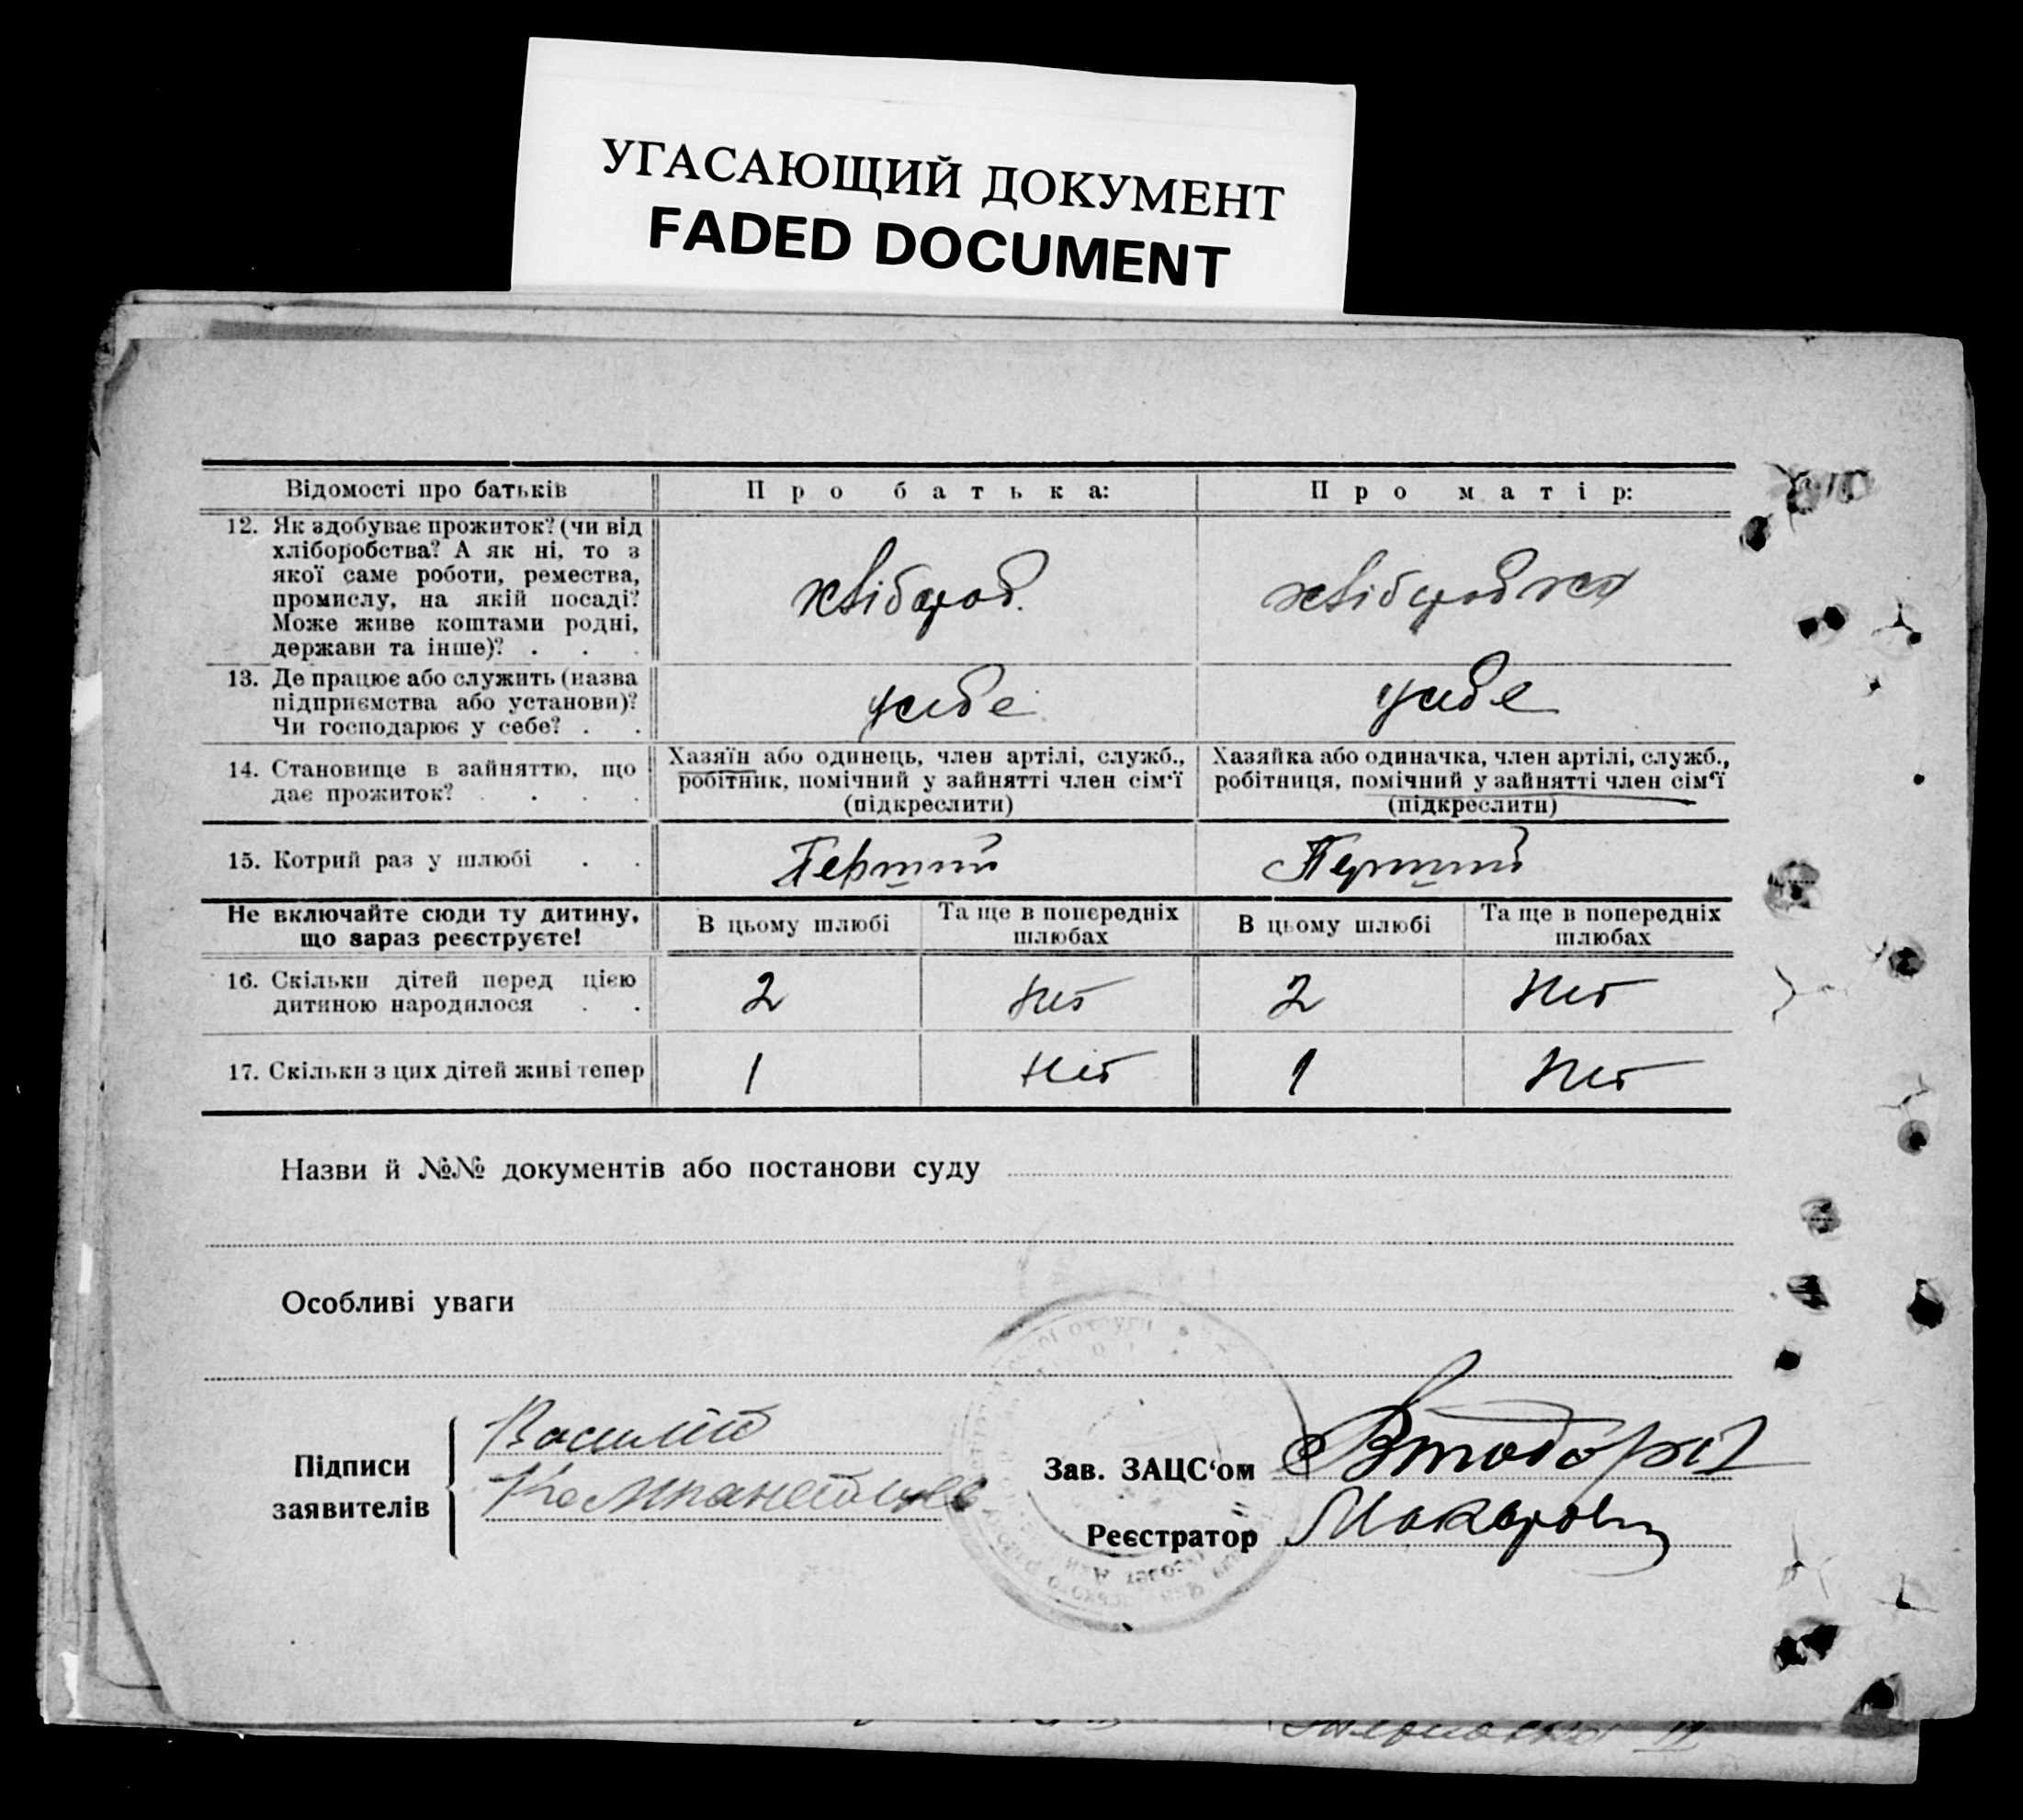 УГАСАЮЩИЙ ДОКУМЕНТ
FADED DOCUMENT
Відомості про батьків
Про батька:
Про матір:
12. Як здобуває прожиток? (чи від
хліборобства? А як ні, то з
якої саме роботи, ремества,
промислу, на якій посаді?
Може живе коштами родні,
держави та інше)? . . .
хлібороб.
хліборобка
13. Де працює або служить (назва
підприємства або установи)?
Чи господарює у себе? . .
у себе
у себе
14. Становище в зайняттю, що
дає прожиток? . . . .
Хазяїн або одинець, член артілі, служб.,
робітник, помічний у зайнятті член сім'ї
(підкреслити)
Хазяйка або одиначка, член артілі, служб.,
робітниця, помічний у зайнятті член сім'ї
(підкреслити)
15. Котрий раз у шлюбі . .
Перший
Перший
Не включайте сюди ту дитину,
що зараз реєструєте!
В цьому шлюбі
Та ще в попередніх
шлюбах
В цьому шлюбі
Та ще в попередніх
шлюбах
16. Скільки дітей перед цією
дитиною народилося . .
2
Ні
2
Ні
17. Скільки з цих дітей живі тепер
1
1
Назви й №№ документів або постанови суду
Особливі уваги
Підписи
заявителів
Василий
Зав. ЗАЦС'ом
Реєстратор